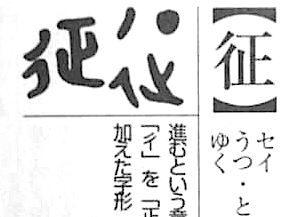 【征】
セイ
うつ・と
ゆく
進むという意
「彳」を「正
加えた字形